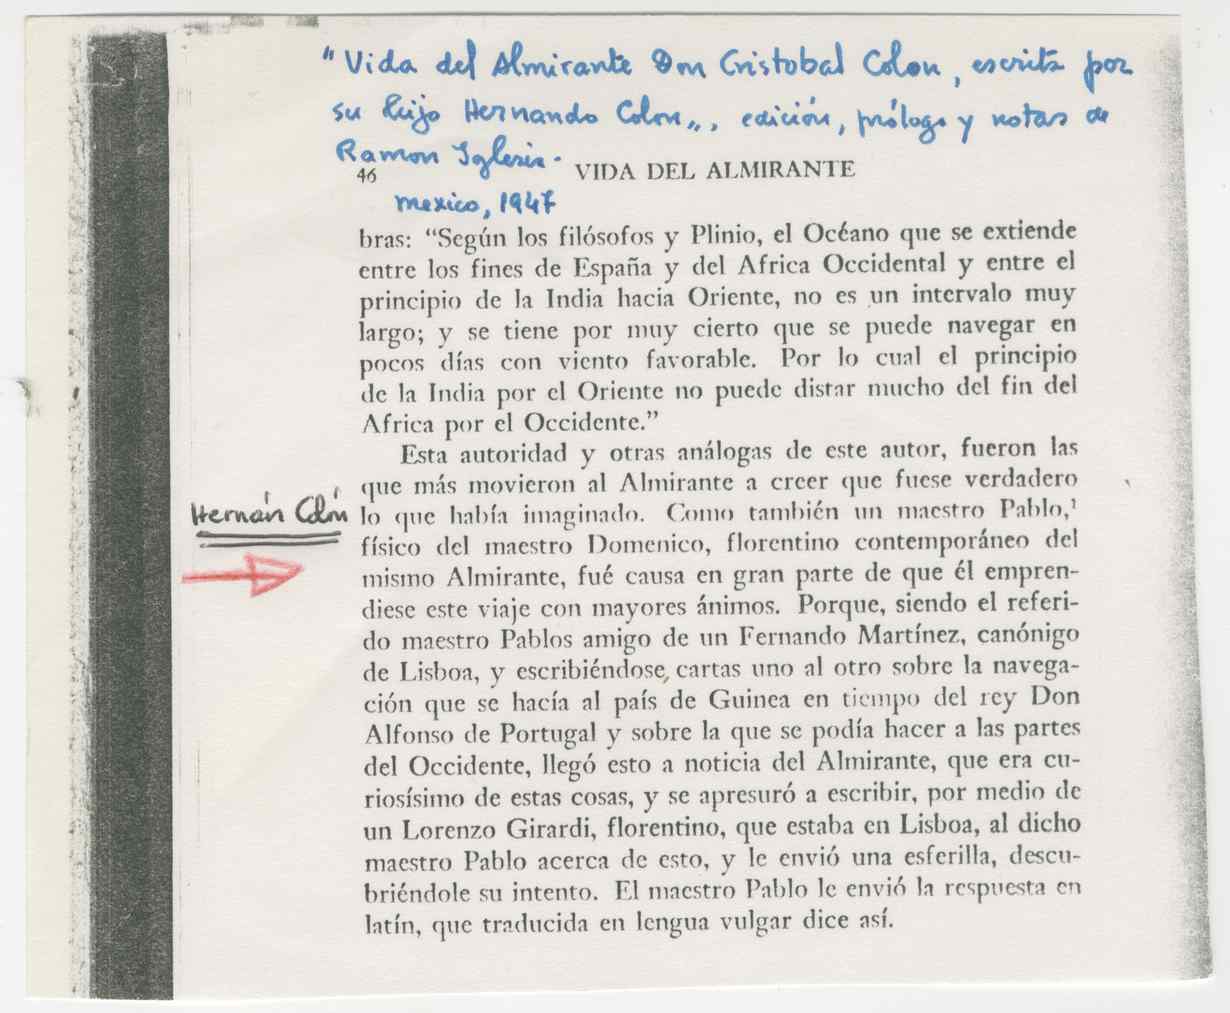 "Vida del Almirante Don Cristobal Colon, escrita por
su hijo Hernando Colon,,, edición, prólogo y notas de
Ramon Iglesia.
46 VIDA DEL ALMIRANTE
mexico, 1947
bras: “Según los filósofos y Plinio, el Océano que se extiende
entre los fines de España y del Africa Occidental y entre el
principio de la India hacia Oriente, no es un intervalo muy
largo; y se tiene por muy cierto que se puede navegar en
pocos días con viento favorable. Por lo cual el principio
de la India por el Oriente no puede distar mucho del fin del
Africa por el Occidente.”
Esta autoridad y otras análogas de este autor, fueron las
que más movieron al Almirante a creer que fuese verdadero
Hernán Colón
lo que había imaginado. Como también un maestro Pablo,¹
físico del maestro Domenico, florentino contemporáneo del
mismo Almirante, fué causa en gran parte de que él empren-
diese este viaje con mayores ánimos. Porque, siendo el referi-
do maestro Pablos amigo de un Fernando Martínez, canónigo
de Lisboa, y escribiéndose, cartas uno al otro sobre la navega-
ción que se hacía al país de Guinea en tiempo del rey Don
Alfonso de Portugal y sobre la que se podía hacer a las partes
del Occidente, llegó esto a noticia del Almirante, que era cu-
riosísimo de estas cosas, y se apresuró a escribir, por medio de
un Lorenzo Girardi, florentino, que estaba en Lisboa, al dicho
maestro Pablo acerca de esto, y le envió una esferilla, descu-
briéndole su intento. El maestro Pablo le envió la respuesta en
latín, que traducida en lengua vulgar dice así.